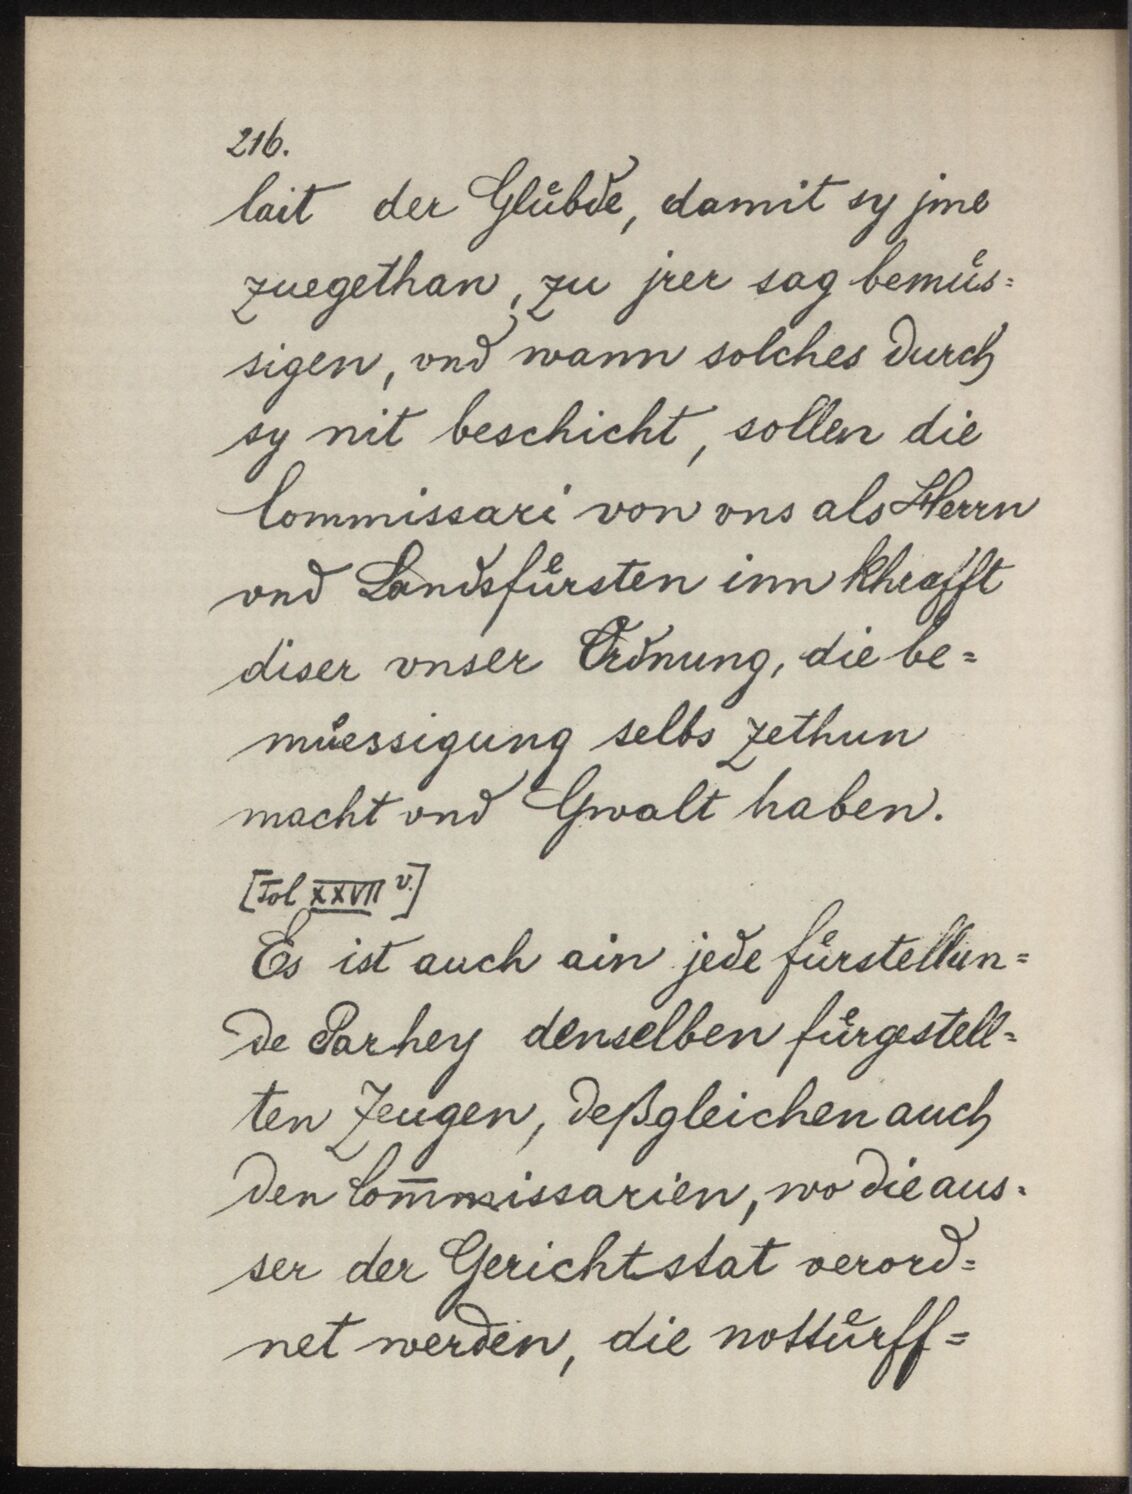 216.
lait der Glůbde, damit sy jme
zuegethan, zu jrer sag bemůs=
sigen, vnd wann solches durch
sy nit beschicht, sollen die
Commissari von vns als Herrn
vnd Landsfůrsten inn khrafft
diser vnser Ordnung, die be=
můessigung selbs zethun
macht vnd Gwalt haben.
[Fol XXVII v.]
Es ist auch ain jede fůrstellun=
de Parhey denselben fůrgestell=
ten Zeugen, deßgleichen auch
den Com̅missarien, wo die aus=
ser der Gerichtstat verord=
net werden, die nottůrff=